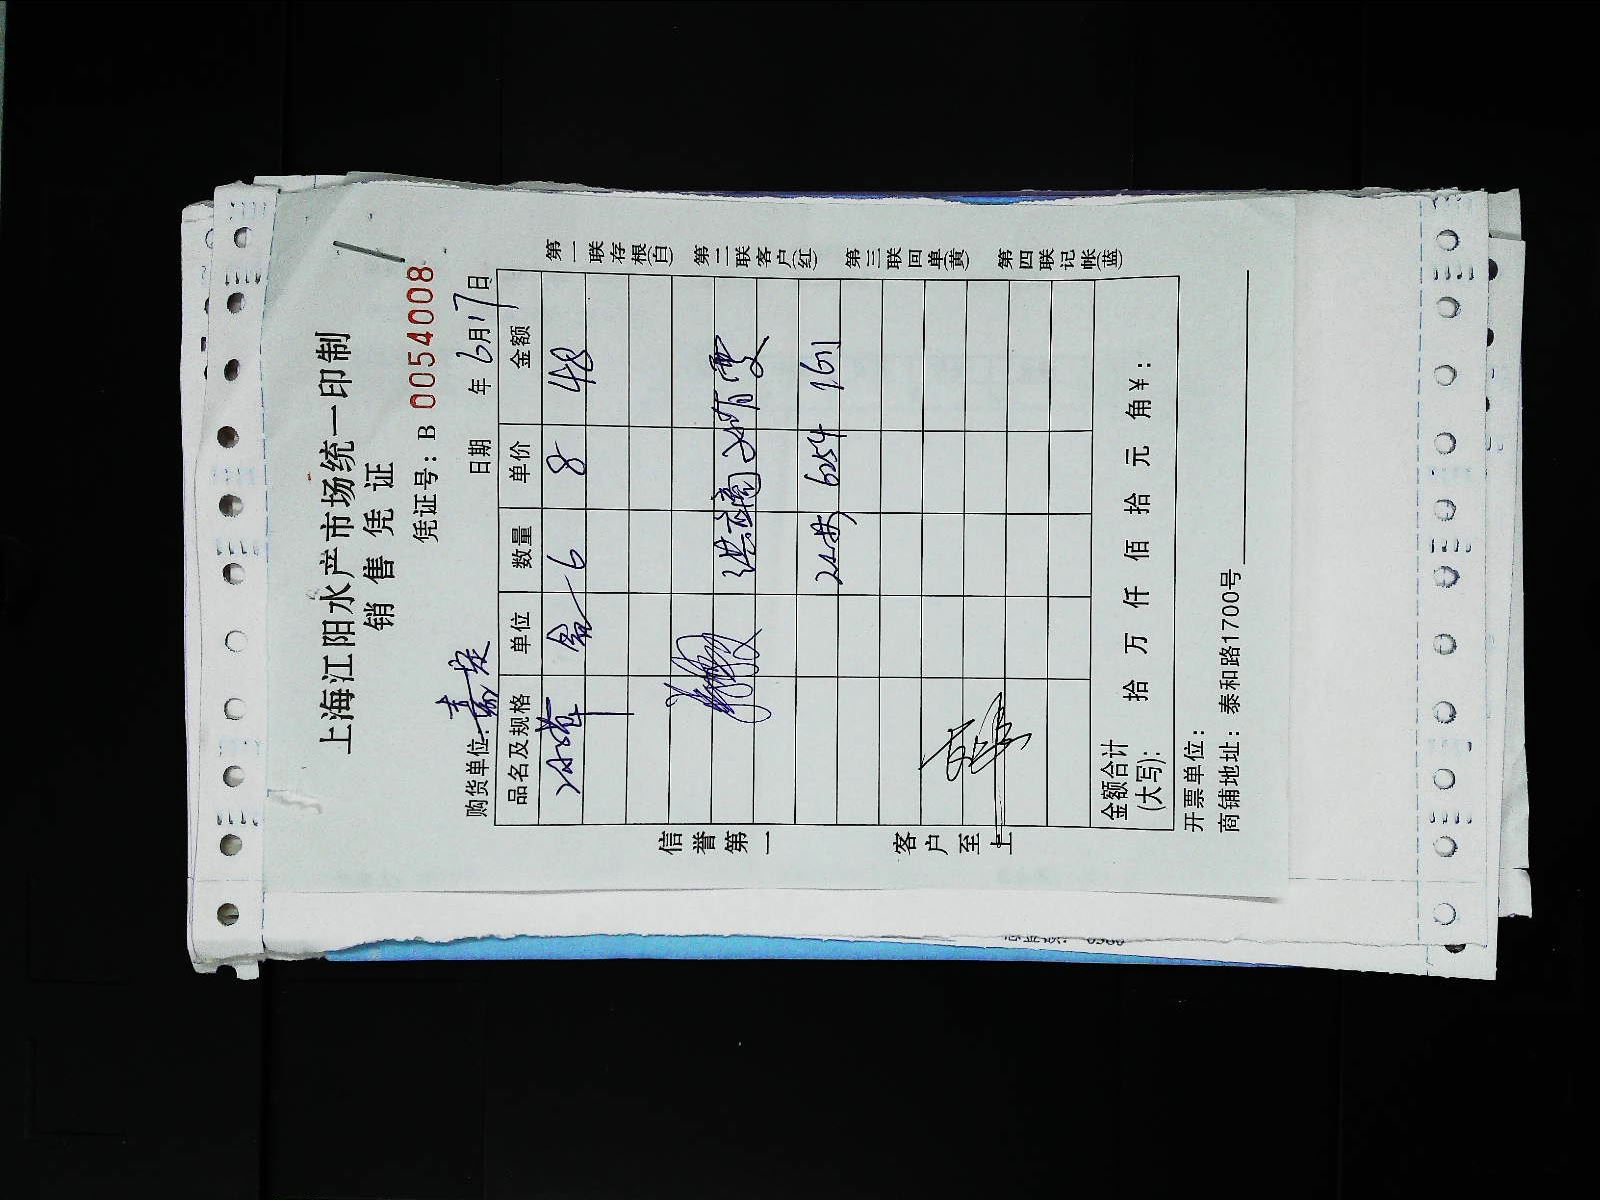 上海江阳水产市场统一印制
销售凭证
凭证号：B 0054008
购货单位：嘉定 日期 年 6月17日
品名及规格 单位 数量 单价 金额
6 8 48
6254 1611
金额合计(大写)： 拾 万 仟 佰 拾 元 角￥：
开票单位：
商铺地址：泰和路1700号
信誉第一 客户至上
第一联存根(白) 第二联客户(红) 第三联回单(黄) 第四联记帐(蓝)